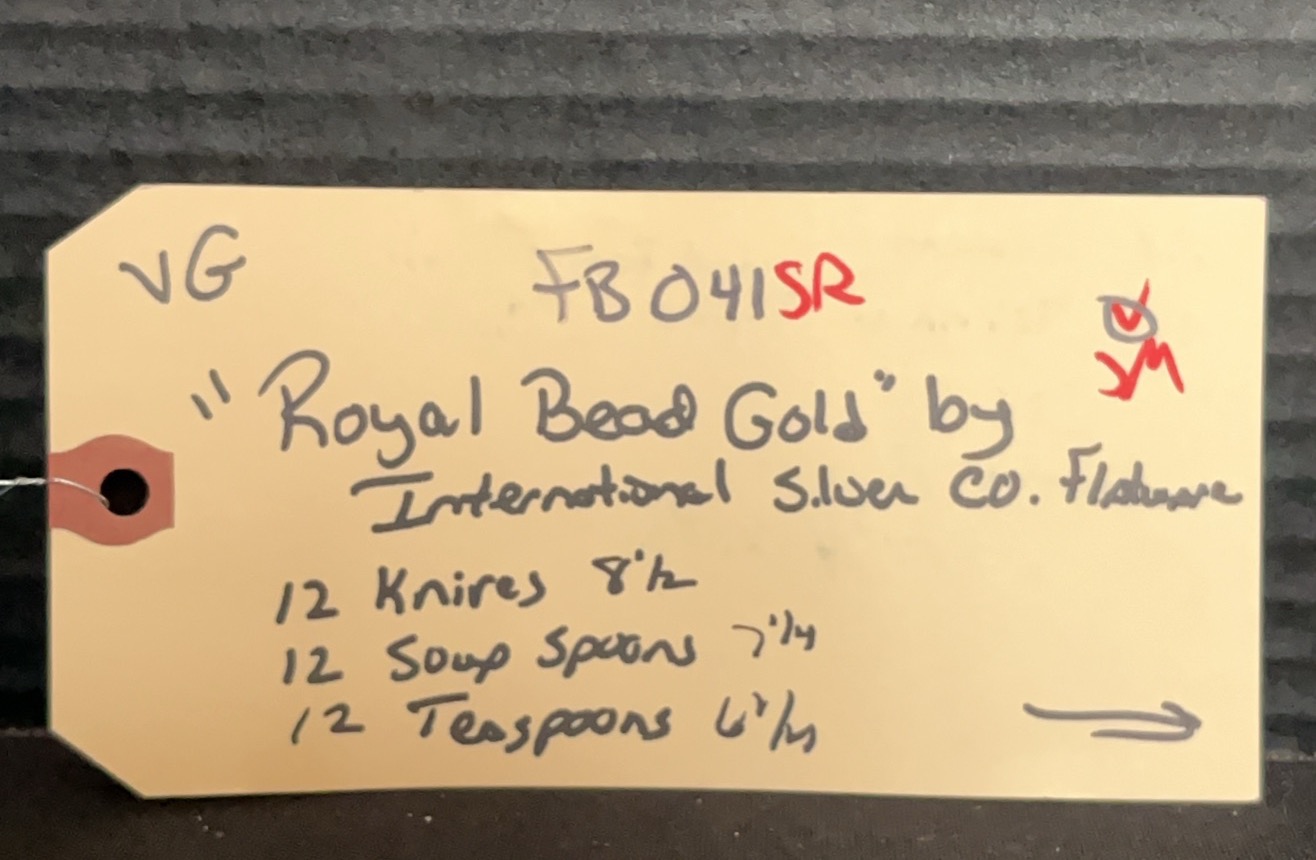 VG FB041SR
"Royal Bead Gold" by
International Silver Co. Flatware
12 Knives 8 1/2
12 Soup Spoons 7 1/4
12 Teaspoons 6 1/4